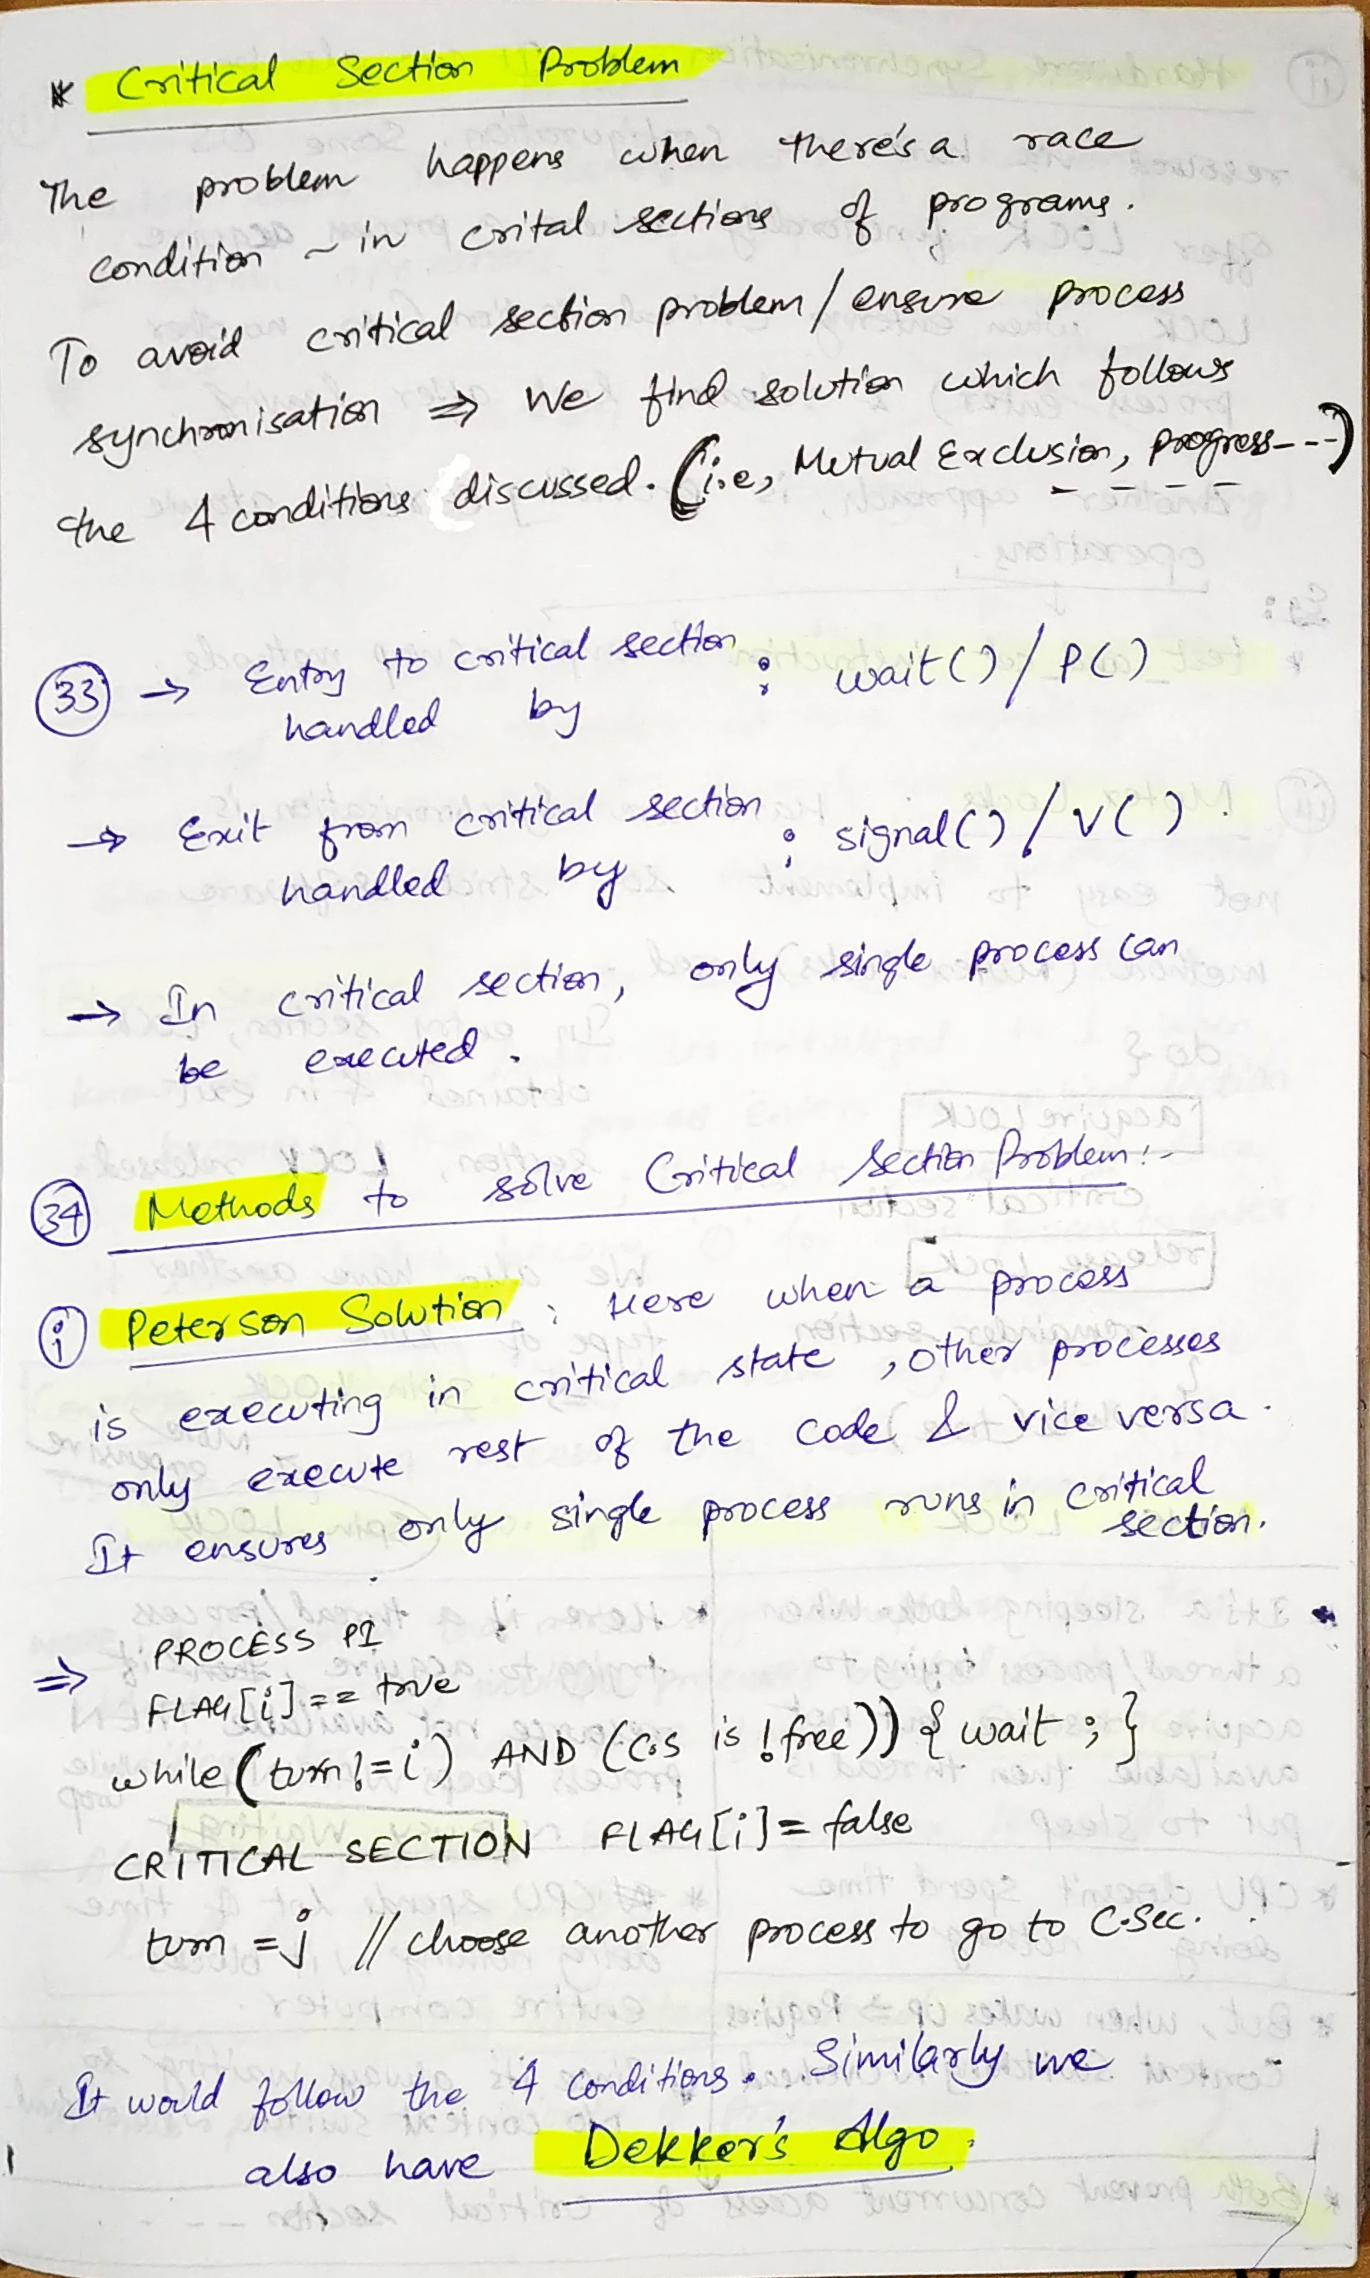 * Critical Section Problem
The problem happens when there's a race
condition ~ in crital sections of programs.
To avoid critical section problem / ensure process
synchronisation ⇒ We find solution which follows
the 4 conditions discussed. (i.e, Mutual Exclusion, progress---)
33 → Entry to critical section : wait() / P()
handled by
→ Exit from critical section : signal() / V()
handled by
→ In critical section, only single process can
be executed.
34 Methods to solve Critical Section Problem:-
i Peterson Solution : Here when a process
is executing in critical state, other processes
only execute rest of the code & vice versa.
It ensures only single process runs in critical
section.
⇒ PROCESS PI
FLAG[i] == true
while (turn != i) AND (C.S is !free)) { wait ; }
CRITICAL SECTION FLAG[i] = false
turn = j // choose another process to go to C.Sec.
It would follow the 4 conditions. Similarly we
also have Dekker's Algo.